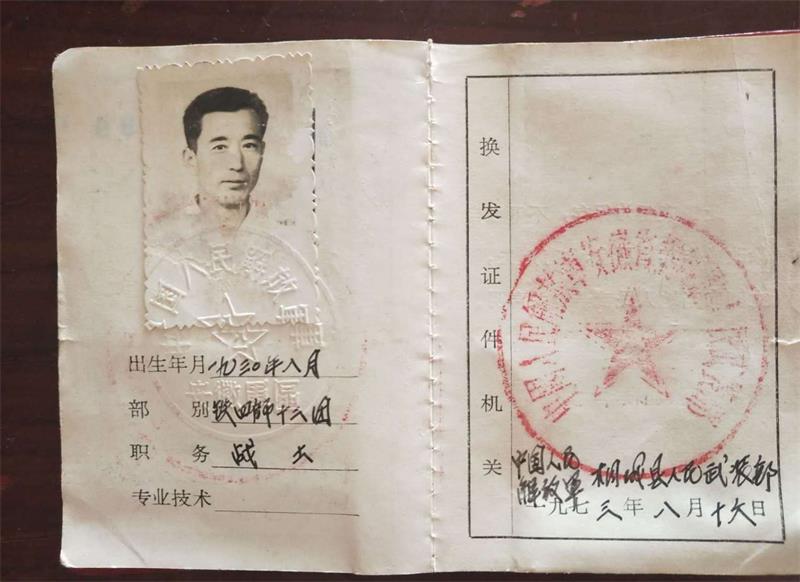 出生年月 一九三〇年八月
部别 铁四师十三团
职务 战士
专业技术
换发证件机关
中国人民
解放军 桐城县人民武装部
一九七三年八月十六日